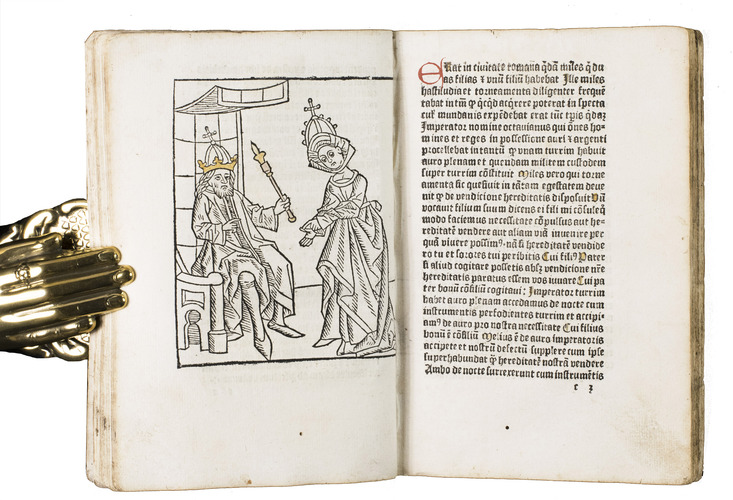 ERat in civitate romana qdā miles q du
as filias ⁊ vnū filiū habebat Ille miles
hastiludia et torneamenta diligenter freque
tabat in tm̄ ꝙ qcqd acqrere poterat in specta
cul mundanis expēdebat erat tūc tpis qdaz
Imperator nomine octavianus qui ōnes ho
mines et reges in possessione auri ⁊ argenti
precellebat in tantū ꝙ vnam turrim habuit
auro plenam et quendam militem custodem
super turrim cōstituit Miles vero qui torne
amenta sic quesiuit in tātam egestatem deue
nit ꝙ de vendicione hereditatis disposuit Vn̄
vocauit filium suum dicens ei fili mi cōsuleq
modo faciemus necessitate cōpulsus aut he
reditatē vendere aut aliam viā inuenire per
quā viuere possimꝰ nā si hereditatē vendide
ro tu et sorores tui peribitis Cui filiꝰ Pater
si aliud cogitare possetis absqz vendicione nr̄e
hereditatis paratus essem vos iuuare Cui pa
ter bonū cōsiliū cogitaui: Imperator turrim
habet auro plenam accedamus de nocte cum
instrumentis perfodientes turrim et accipi
amꝰ de auro pro nostra necessitate Cui filius
bonū ē cōsiliū Melius ē de auro imperatoris
accipere et nostrū defectū supplere cum ipse
superhabundat ꝙ hereditatē nostrā vendere
Ambo de nocte surrexerunt cum instrumētis